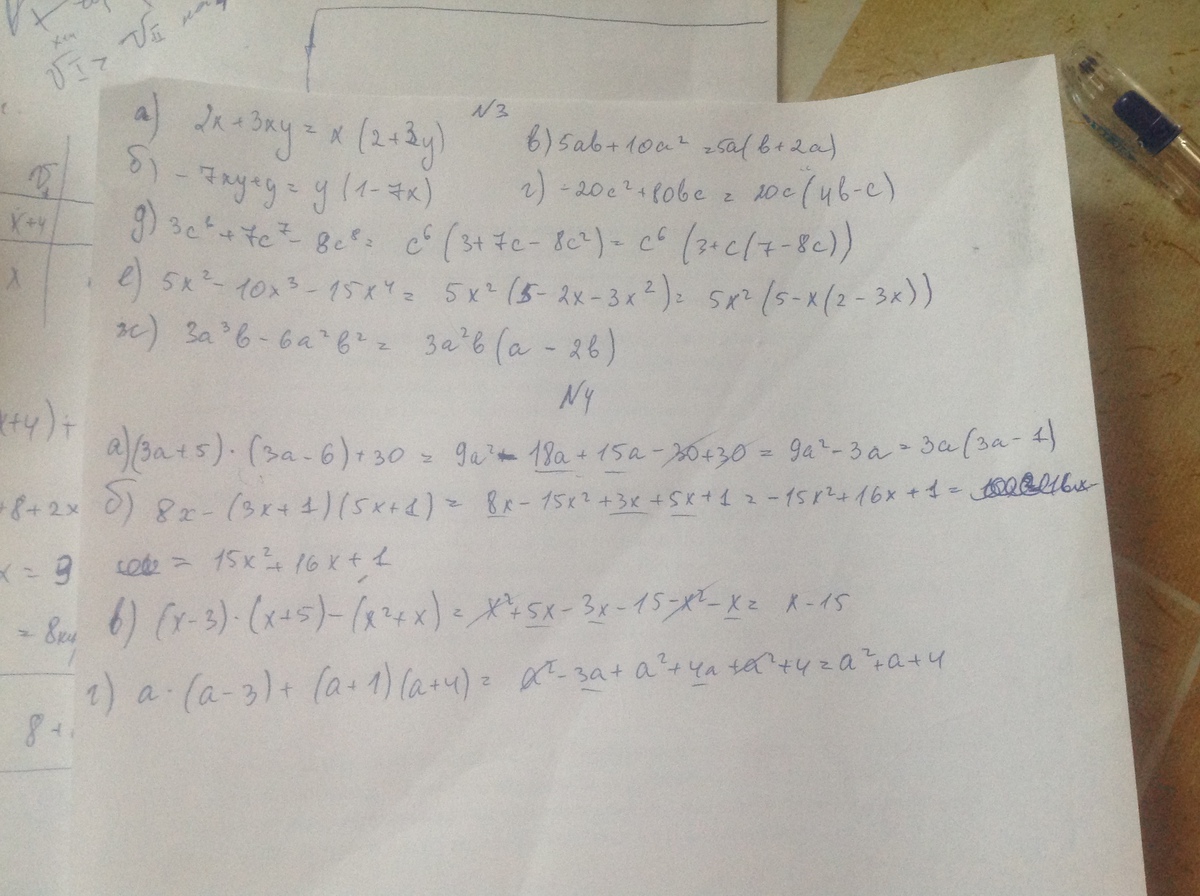 N3
а) 2x+3xy = x (2+3y)
в) 5ab+10a² = 5a(b+2a)
б) -7xy+y = y (1-7x)
г) -20c²+80bc = 20c(4b-c)
д) 3c⁶+7c⁷-8c⁸ = c⁶ (3+7c-8c²) = c⁶ (3+c(7-8c))
е) 5x²-10x³-15x⁴ = 5x² (5-2x-3x²) = 5x² (5-x(2-3x))
ж) 3a³b-6a²b² = 3a²b (a-2b)
N4
а) (3a+5)·(3a-6)+30 = 9a²-18a+15a-30+30 = 9a²-3a = 3a(3a-1)
б) 8x-(3x+1)(5x+1) = 8x-15x²+3x+5x+1 = -15x²+16x+1 =
= 15x²+16x+1
в) (x-3)·(x+5)-(x²+x) = x²+5x-3x-15-x²-x = x-15
г) a·(a-3)+(a+1)(a+4) = a²-3a+a²+4a+a²+4 = a²+a+4
x+4
x
x+4)+
+8+2x
x = 9
= 8xy
8+